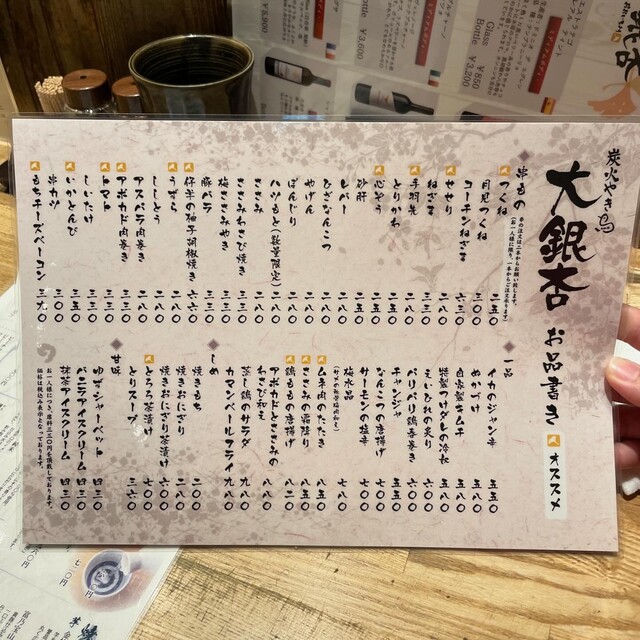 炭火やき鳥
大銀杏 お品書き
オススメ
串もの
串の注文は二本からお願い致します。
(お一人様に限り、一本からご注文承ります)
つくね 二五〇
月見つくね 三〇〇
コーチンねぎま 六三〇
せせり 二八〇
ねぎま 三三〇
手羽先 二八〇
とりかわ 二五〇
心ぞう 二五〇
砂肝 二五〇
レバー 二五〇
ひざなんこつ 二八〇
やげん 二八〇
ぼんじり 二八〇
ハツもと(数量限定) 二八〇
ささみ 二八〇
ささみわさび焼き 三三〇
梅ささみやき 三三〇
豚バラ 二八〇
仔羊の柚子胡椒焼き
うずら 二八〇
ししとう 二八〇
アスパラ肉巻き 三三〇
アボカド肉巻き 三三〇
トマト 三三〇
しいたけ 二八〇
いかとんび 三五〇
串カツ 三〇〇
もちチーズベーコン
一品
イカのジャン辛 五五〇
めかづけ 五八〇
自家製キムチ 五五〇
特製つけダレの冷奴
えいひれの炙り 六〇〇
パリパリ鶏春巻き 六〇〇
チャンジャ 五五〇
なんこつの唐揚げ
サーモンの塩辛
梅水晶 七八〇
(サメの軟骨梅肉和え)
ムネ肉のたたき 八五〇
ささみの霜降り 八五〇
鶏ももの唐揚げ 八二〇
アボカドとささみの
わさび和え 八八〇
蒸し鶏のサラダ 九八〇
カマンベールフライ
しめ
焼きもち 二〇〇
焼きおにぎり 二八〇
焼きおにぎり茶漬け
とろろ茶漬け 七〇〇
とりスープ 三六〇
甘味
ゆずシャーベット 四三〇
バニラアイスクリーム 四三〇
抹茶アイスクリーム 四三〇
お一人様につき、席料三三〇円を頂戴しております。
価格は税込み表示となっております。
Bottle ¥3,600
Glass ¥850
Bottle ¥3,200